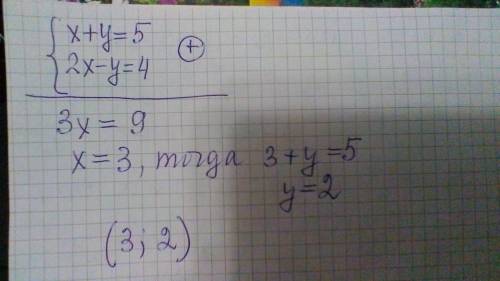 x+y=5
2x-y=4 ⊕
3x = 9
x=3, тогда 3+y=5
y=2
(3; 2)